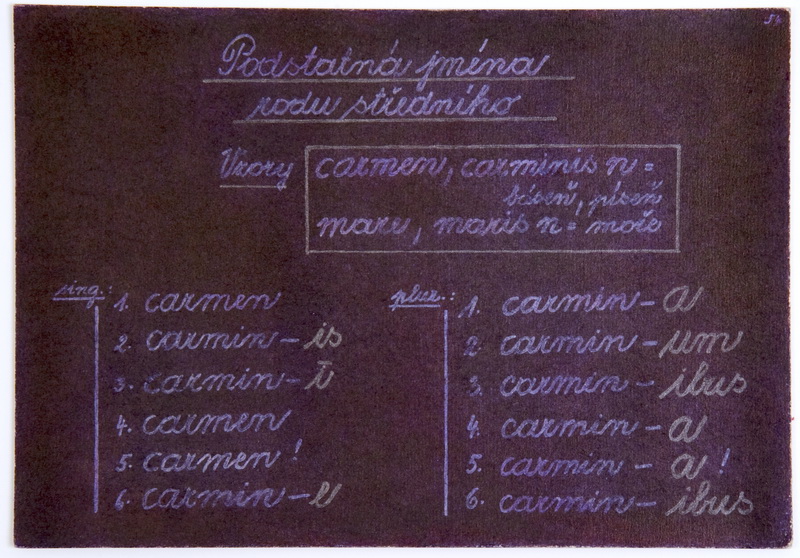 54
Podstatná jména
rodu středního
Vzory carmen, carminis n =
báseň, píseň
mare, maris n = moře
sing.:
1. carmen
2. carmin - is
3. carmin - ī
4. carmen
5. carmen!
6. carmin - e
plur.:
1. carmin - a
2. carmin - um
3. carmin - ibus
4. carmin - a
5. carmin - a!
6. carmin - ibus